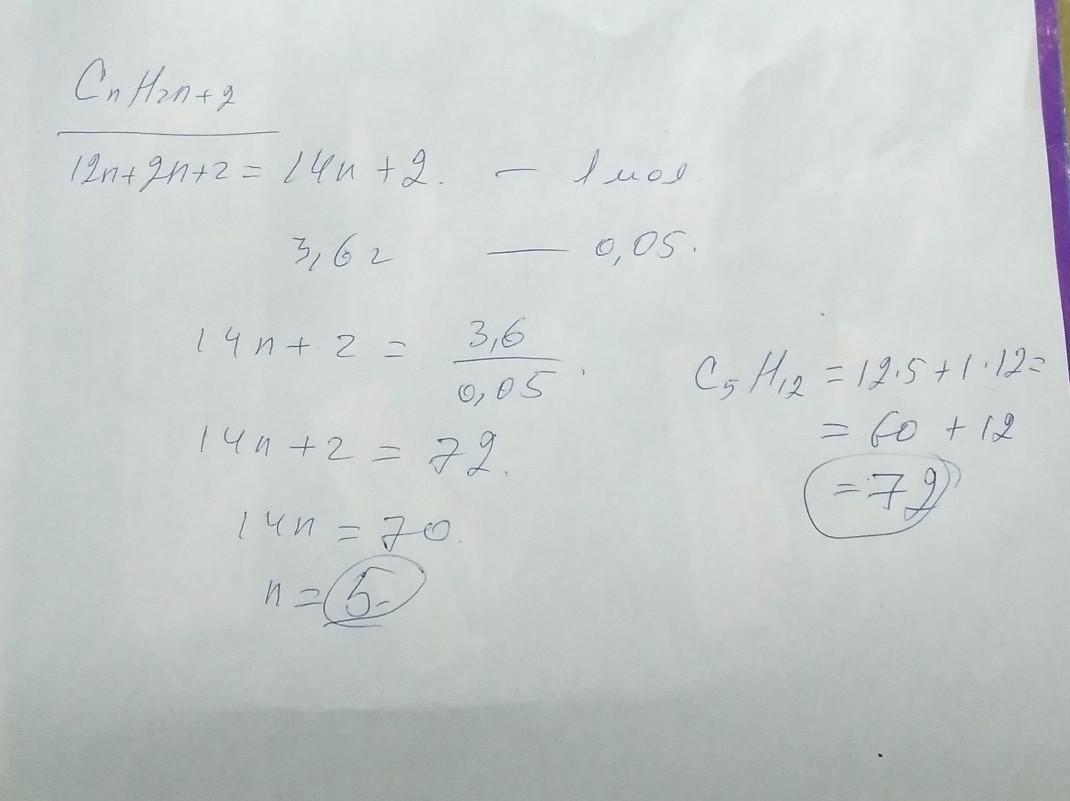 CnH2n+2
12n+2n+2 = 14n+2. — 1 мол
3,6г — 0,05.
14n+2 = 3,6/0,05.
14n+2 = 72.
14n = 70.
n = 5.
C5H12 = 12·5+1·12=
= 60 + 12
= 72